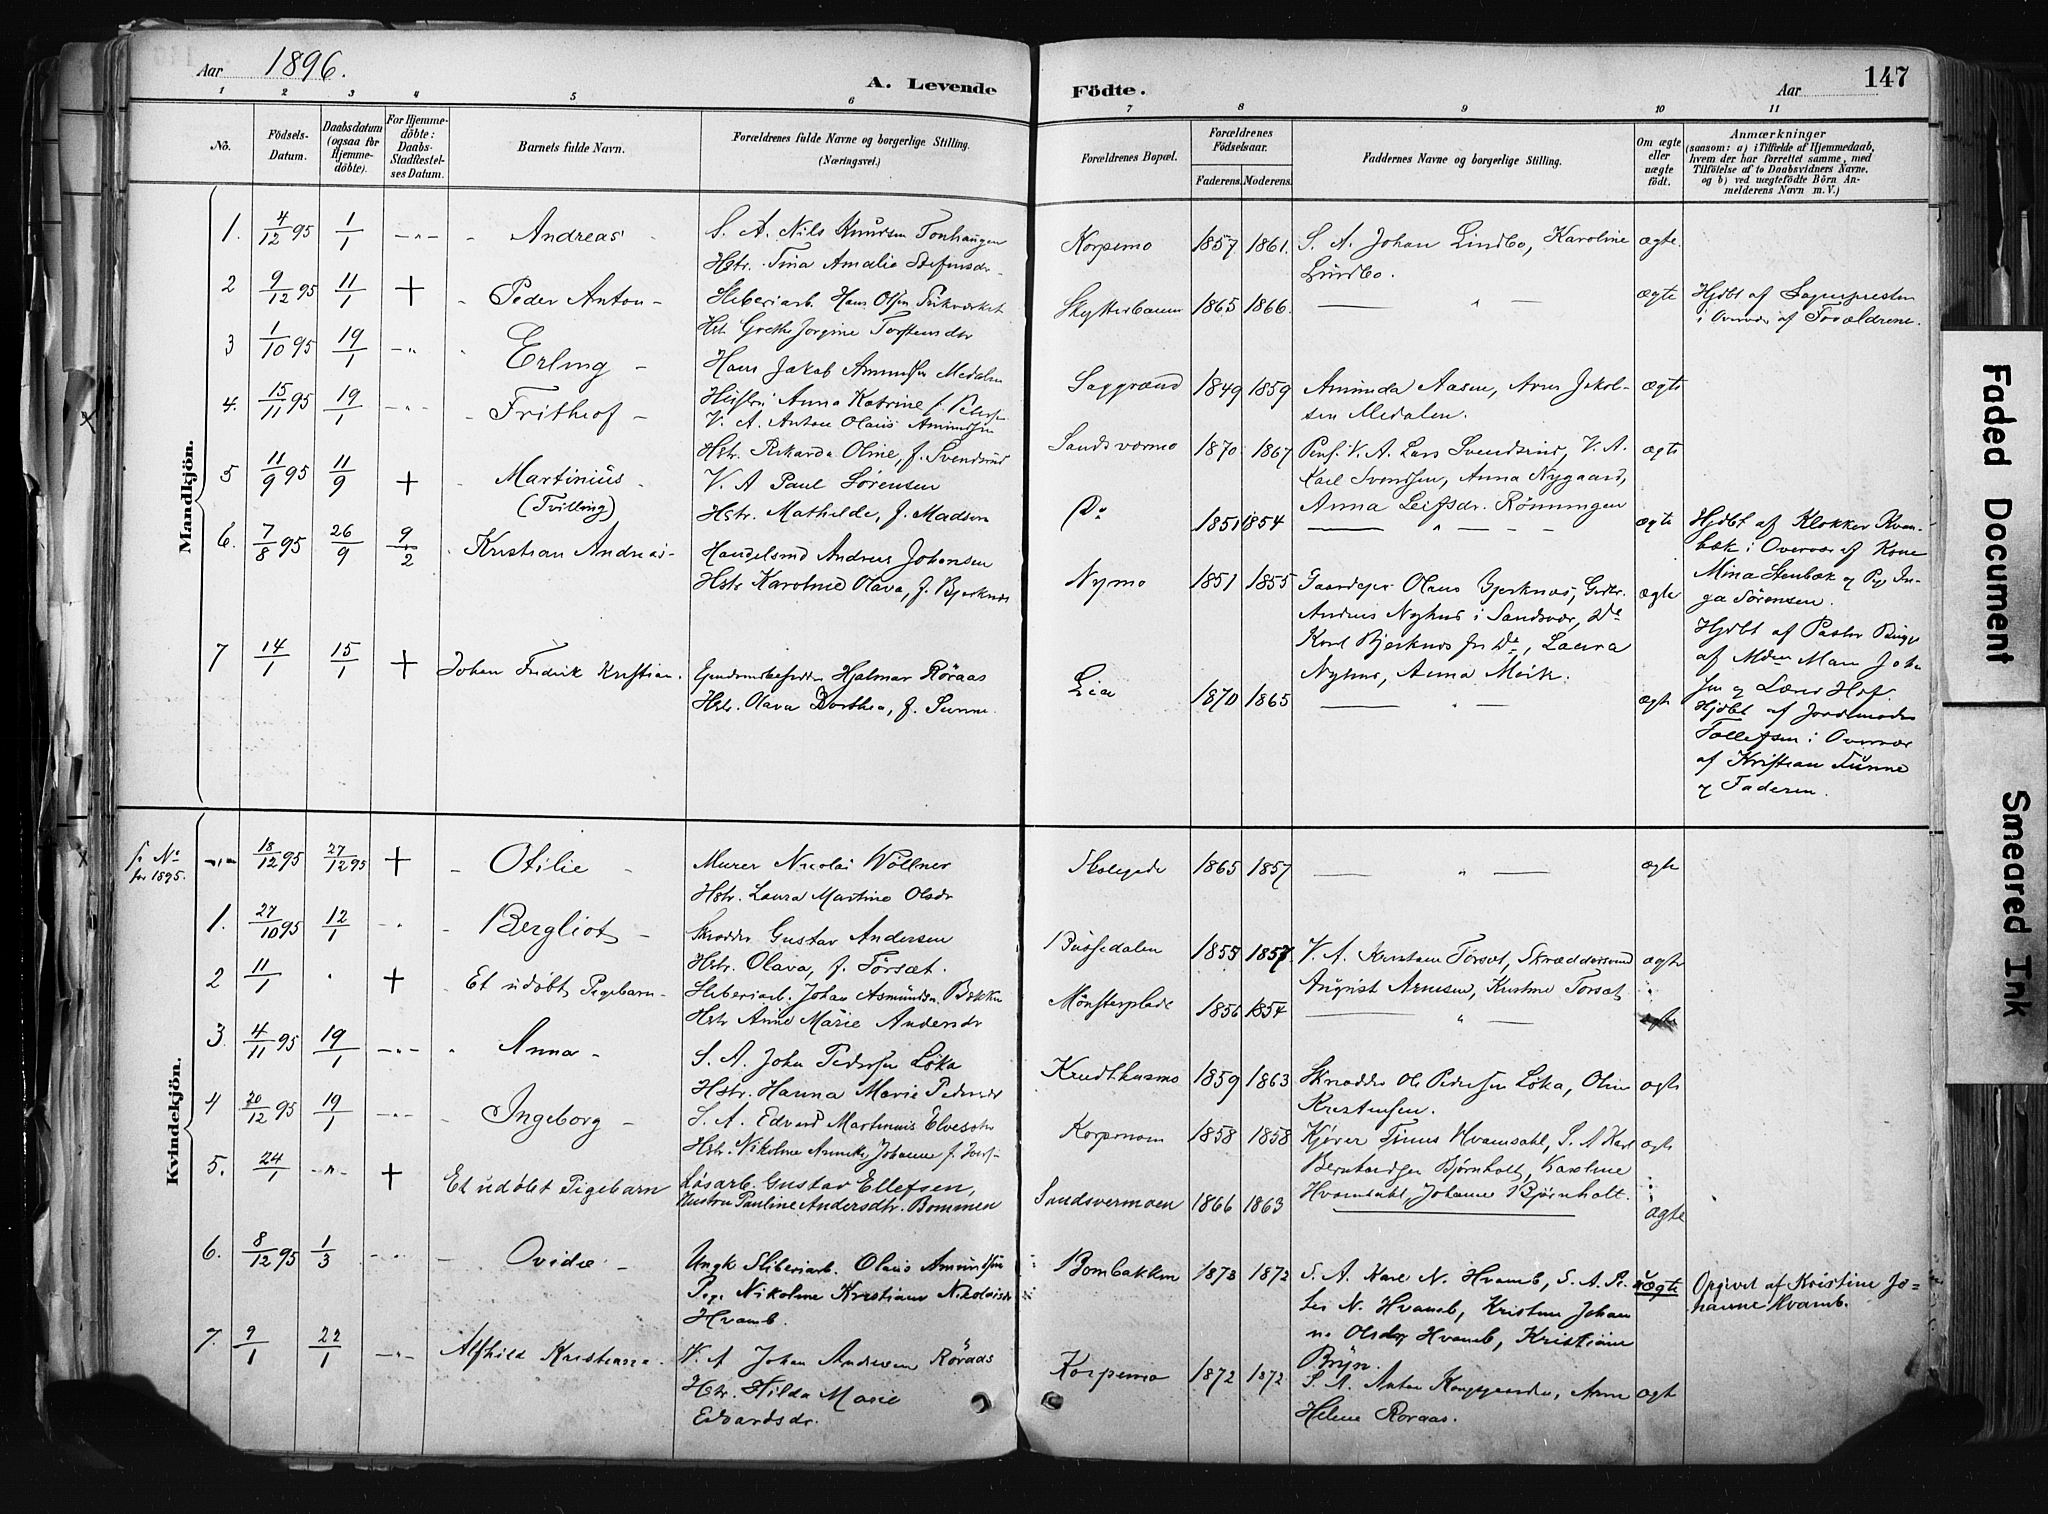 Aar 1896.
A. Levende
Födte.
Aar
147
1 2 3 4 5 6 7 8 9 10 11
No.
Födsels-Datum.
Daabsdatum (ogsaa for Hjemme-döbte).
For Hjemme-döbte: Daabs-Stadfæstel-ses Datum.
Barnets fulde Navn.
Forældrenes fulde Navne og borgerlige Stilling.
(Næringsvei.)
Forældrenes Bopæl.
Forældrenes Födselsaar.
Faderens. Moderens.
Faddernes Navne og borgerlige Stilling.
Om ægte eller uægte födt.
Anmærkninger
(saasom: a) i Tilfælde af Hjemmedaab,
hvem der har forrettet samme, med
Tilföielse af to Daabsvidners Navne,
og b) ved uægtefödte Börn An-
melderens Navn m. V.)
Mandkjön.
1. 4/12 95 1/1 Andreas
S. A. Nils Knudsen Tonhaugen
Hstr. Tina Amalie Stefensdr.
Korpemo 1857 1861.
S. A. Johan Lindbo, Karoline
Lindbo.
ægte.
2 9/12 95 11/1 + Peder Anton
Sliberiarb. Hans Olsen
Hst. Grethe Jorgine Torstensdr
1865 1866.
ægte
Hjdbt af Sognepresten
i Overvær af Forældrene.
3 1/10 95 19/1 Erling
Hans Jakob Amundsen Medalen
Hustru Anna Katrine f. Peters
Saggrend 1849 1859
Amunda Aasen, Arne Jakob-
sen Medalen.
ægte
4. 15/11 95 19/1 Frithjof
V. A. Anton Olaus Amundsen
Hstr. Rikarda Oline, f. Svendsen
Sandsværmo 1870 1867
Pens. V. A. Lars Svendsen, V. A.
Karl Svendsen, Anna Nygaard,
Anna Leifsdr. Rönningen
ægte
5 11/9 95 11/9 + Martinius
(Tvilling)
V. A Paul Sørensen
Hstr. Mathilde, f. Madsen
Do 1851 1854
ægte
Hjdbt af Klokker Kvan-
bæk i Overvær af Kone
Mina Stenbæk og Pige In-
ga Sörensen.
6. 7/8 95 26/9 9/2 Kristian Andreas
Handelsmd Andreas Johansen
Hstr Karoline Olava, f. Bjerknes
Nymo 1851 1855
Gaardejer Olaus Bjerknes, Gbr.
Andreas Nyhus i Sandsvær, Do
Karl Bjerknes fra Do, Laura
Nyhus, Anna Mörk.
ægte
Hjdbt af Pastor
af Mdm Mari Johan
sen og Lærer Hof.
7 14/1 15/1 + Johan Fredrik Kristian.
Hjalmar Röraas
Hstr. Olava Dorthea, f. Sunne.
Lia 1870 1865
ægte
Hjdbt af Jordmoder
Tollefsen i Overvær
af Kristian Sunne
og Faderen.
Kvindekjön.
f. No
for 1895.
18/12 95 27/12 95 + Otilie
Murer Nicolai Wöllner
Hstr. Laura Martine Olsdr
Skolegade 1865 1857
ægte
1. 27/10 95 12/1 Bergliot
Skrædder Gustav Andersen
Hstr. Olava, f. Torsæt.
Bussedalen 1855 1857
V. A. Kristian Torsæt, Skræddersvend
August Arnesen, Kristine Torsæt
ægte
2 11/1 + Et udøbt Pigebarn
Sliberiarb. Johan Asmundsen Bækken
Hstr Anne Marie Andersdr
Mönsterplads 1856 1854
ægte
3. 4/11 95 19/1 Anna
S. A. John Pedersen Løka
Hstr. Hanna Marie Pedersdr
Krudthusmo 1859 1863
Skrædder Ole Pedersen Løka, Oline
Kristensen.
ægte
4 20/12 95 19/1 Ingeborg
S. A. Edvard Martinius
Hstr. Nikoline Annette Johanne f. Iver
1858 1858
Kjører Tinus Hvamdahl, S. A Karl
Bernhardsen Bjørnholt, Karoline
Hvamdahl, Johanne Bjørnholt.
ægte
5. 24/1 + Et udöbt Pigebarn
Løsarb. Gustav Ellefsen,
Hustru Pauline Andersdtr. Bommen
Sandsvermoen 1866 1863
ægte
6. 8/12 95 1/3 Ovidie
Ungk Sliberiarb. Olaus Amundsen
Pige Nikoline Kristiane Nikolaisdr
Hvamb.
Bombakken 1873 1872
S. A. Karl N. Hvamb, S. A. Pe-
ter N. Hvamb, Kristine Johan
ne Olsdr Hvamb, Kristiane
Bryn.
uægte
Opgivet af Kristine Jo-
hanne Hvamb.
7. 9/1 22/1 Alfhild Kristiane
V. A Johan Andersen Röraas
Hstr. Hilda Marie
Edvardsdr.
Korpemo 1872 1872
S. A. Anton Kongsgaarden, Anne
Helene Roraas.
ægte
Faded Document
Smeared Ink